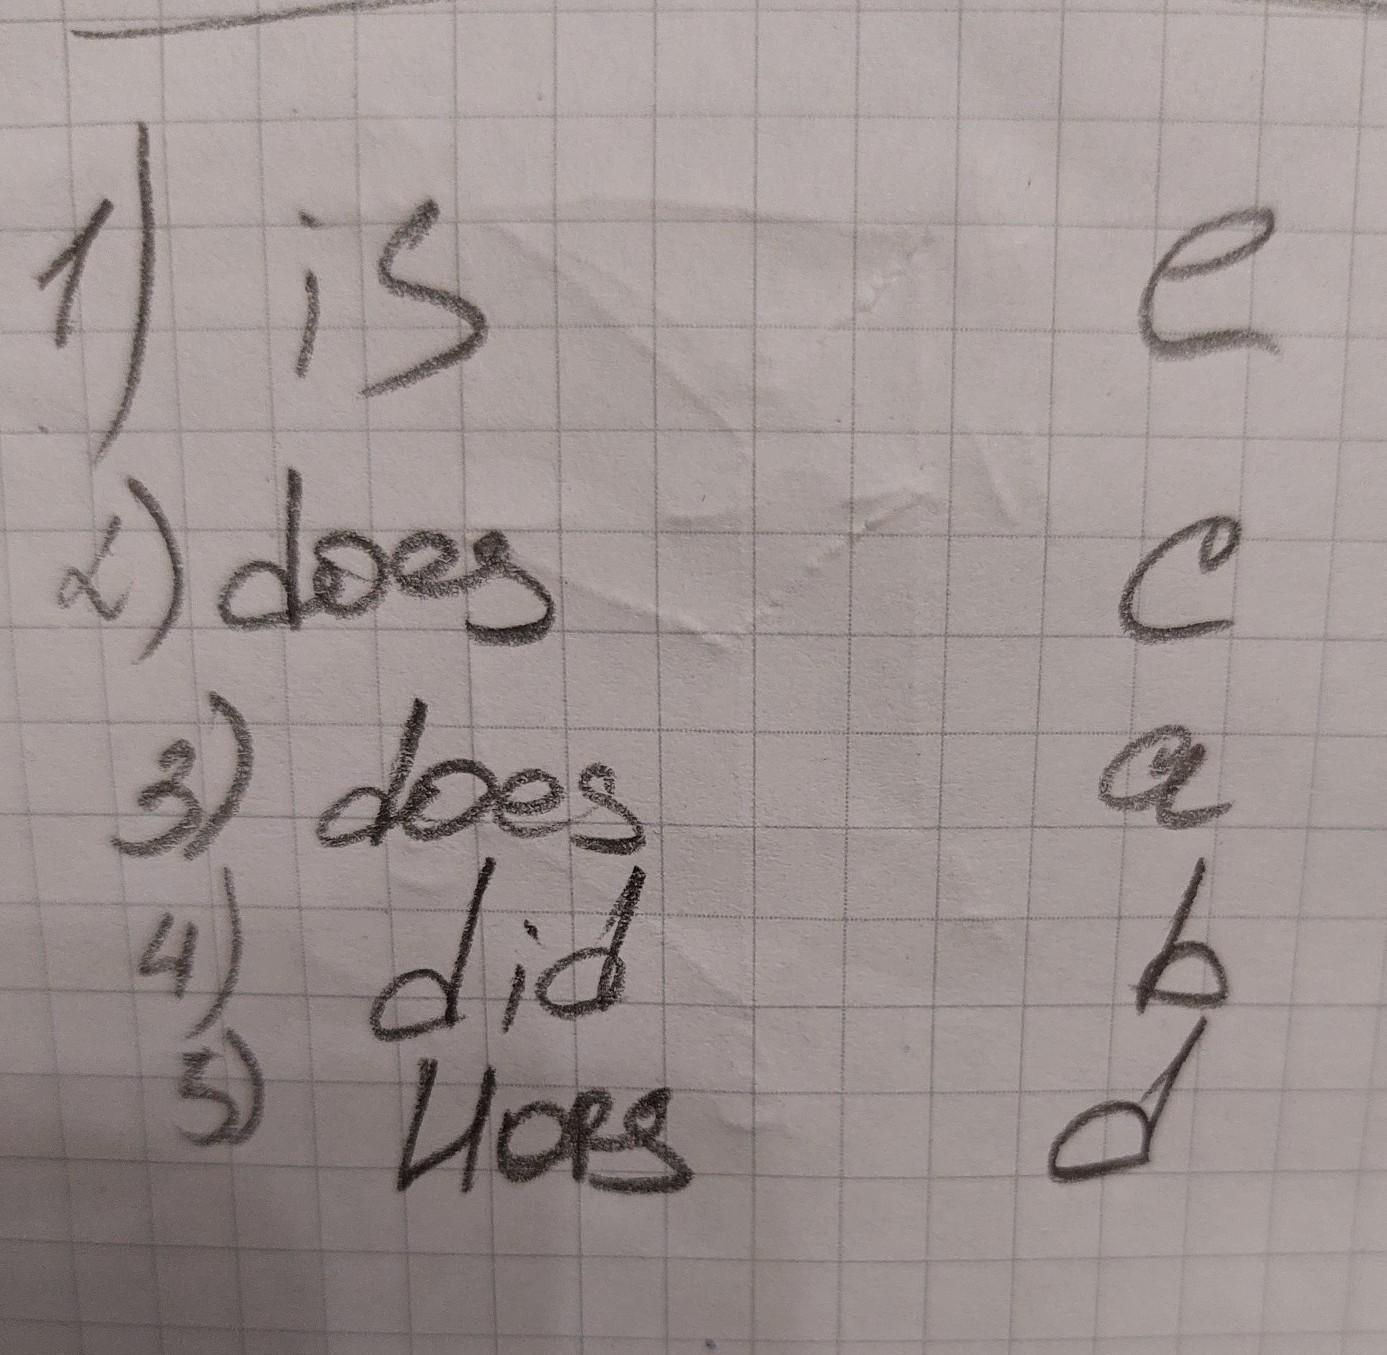 1) is e
2) does c
3) does a
4) did b
5) d